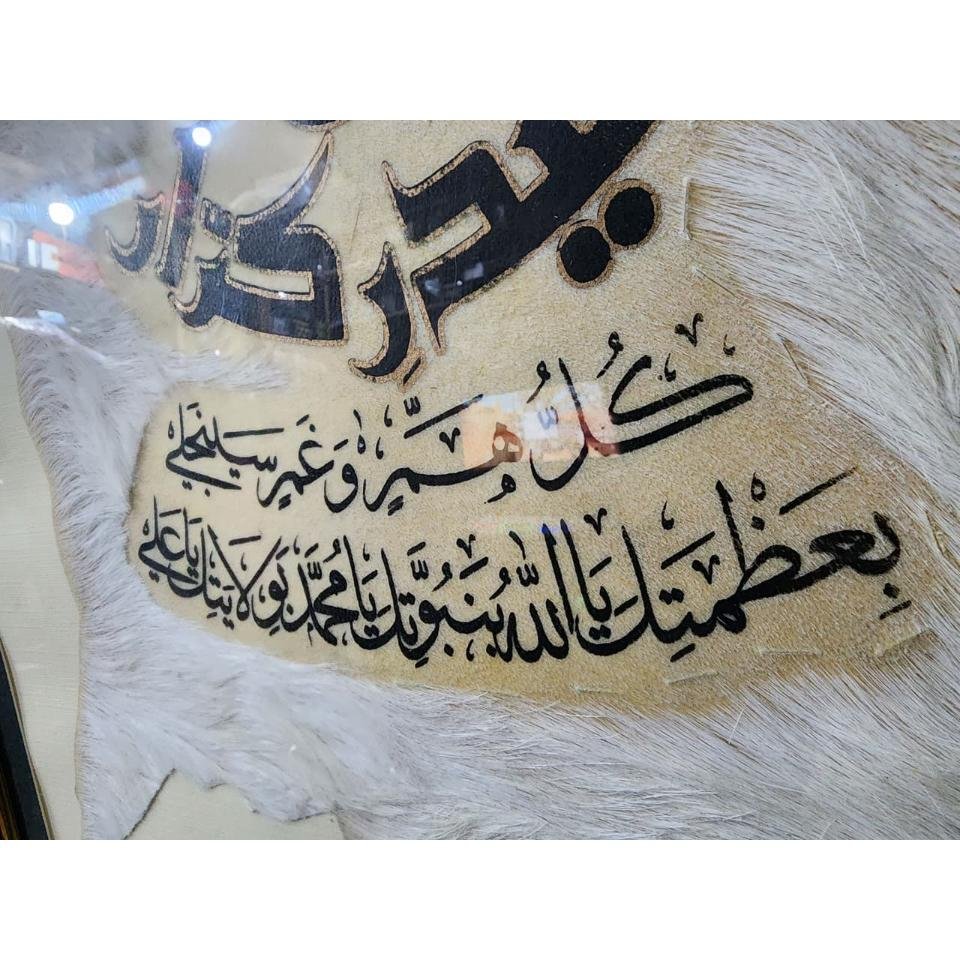 حیدر کرار
كُلُّ هَمٍّ وَغَمٍّ سَيَنْجَلي
بِعَظَمَتِكَ يَا اللّٰه بِنُبُوَّتِكَ يَا مُحَمَّد بِوَلَايَتِكَ يَا عَلي